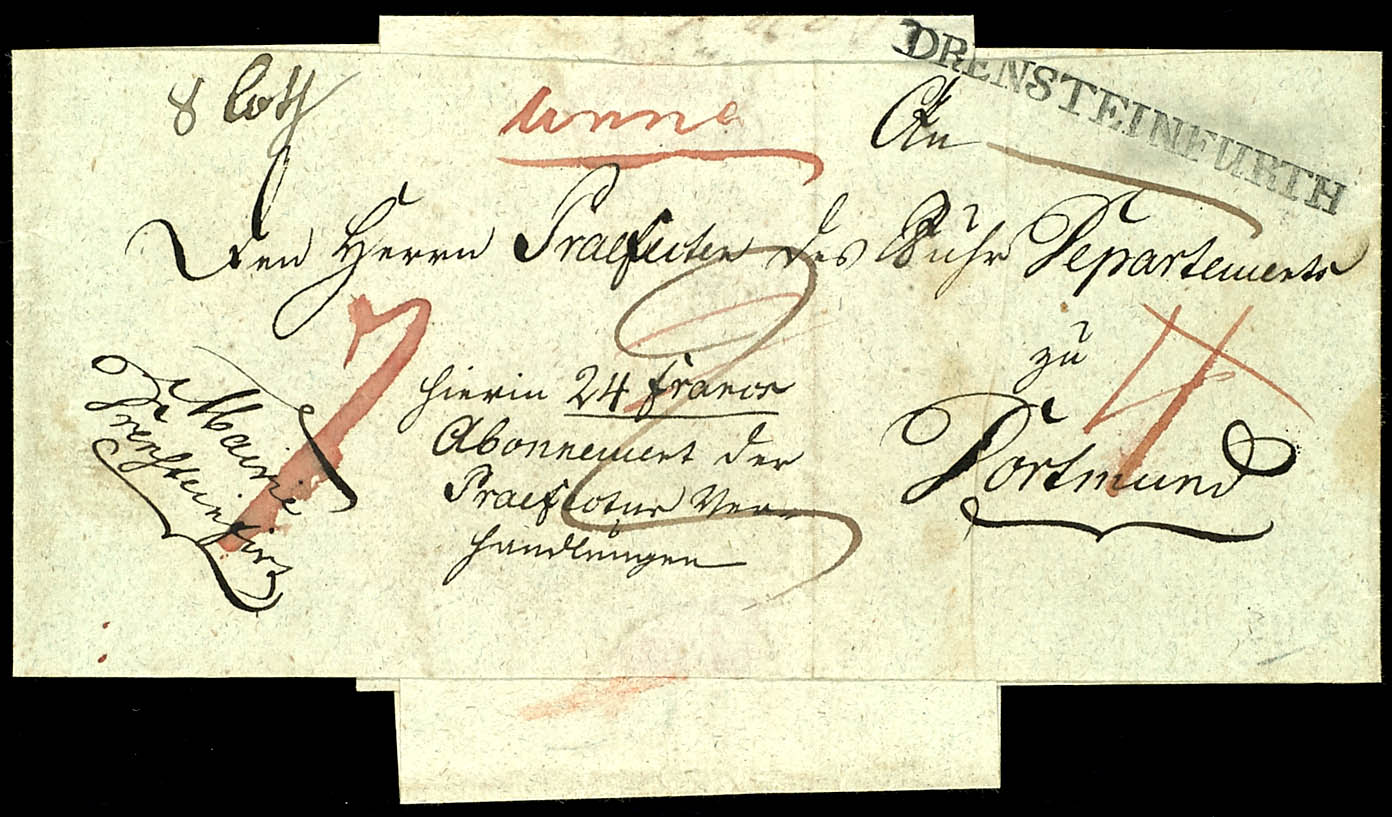 DRENSTEINFURTH
8 Loth
Unna
An
Den Herrn Praefecten des Ruhr Departements
zu
Dortmund
hierin 24 Francs
Abonnement der
Praefectur Ver-
handlungen
Mairie
Drensteinfurt
7
4